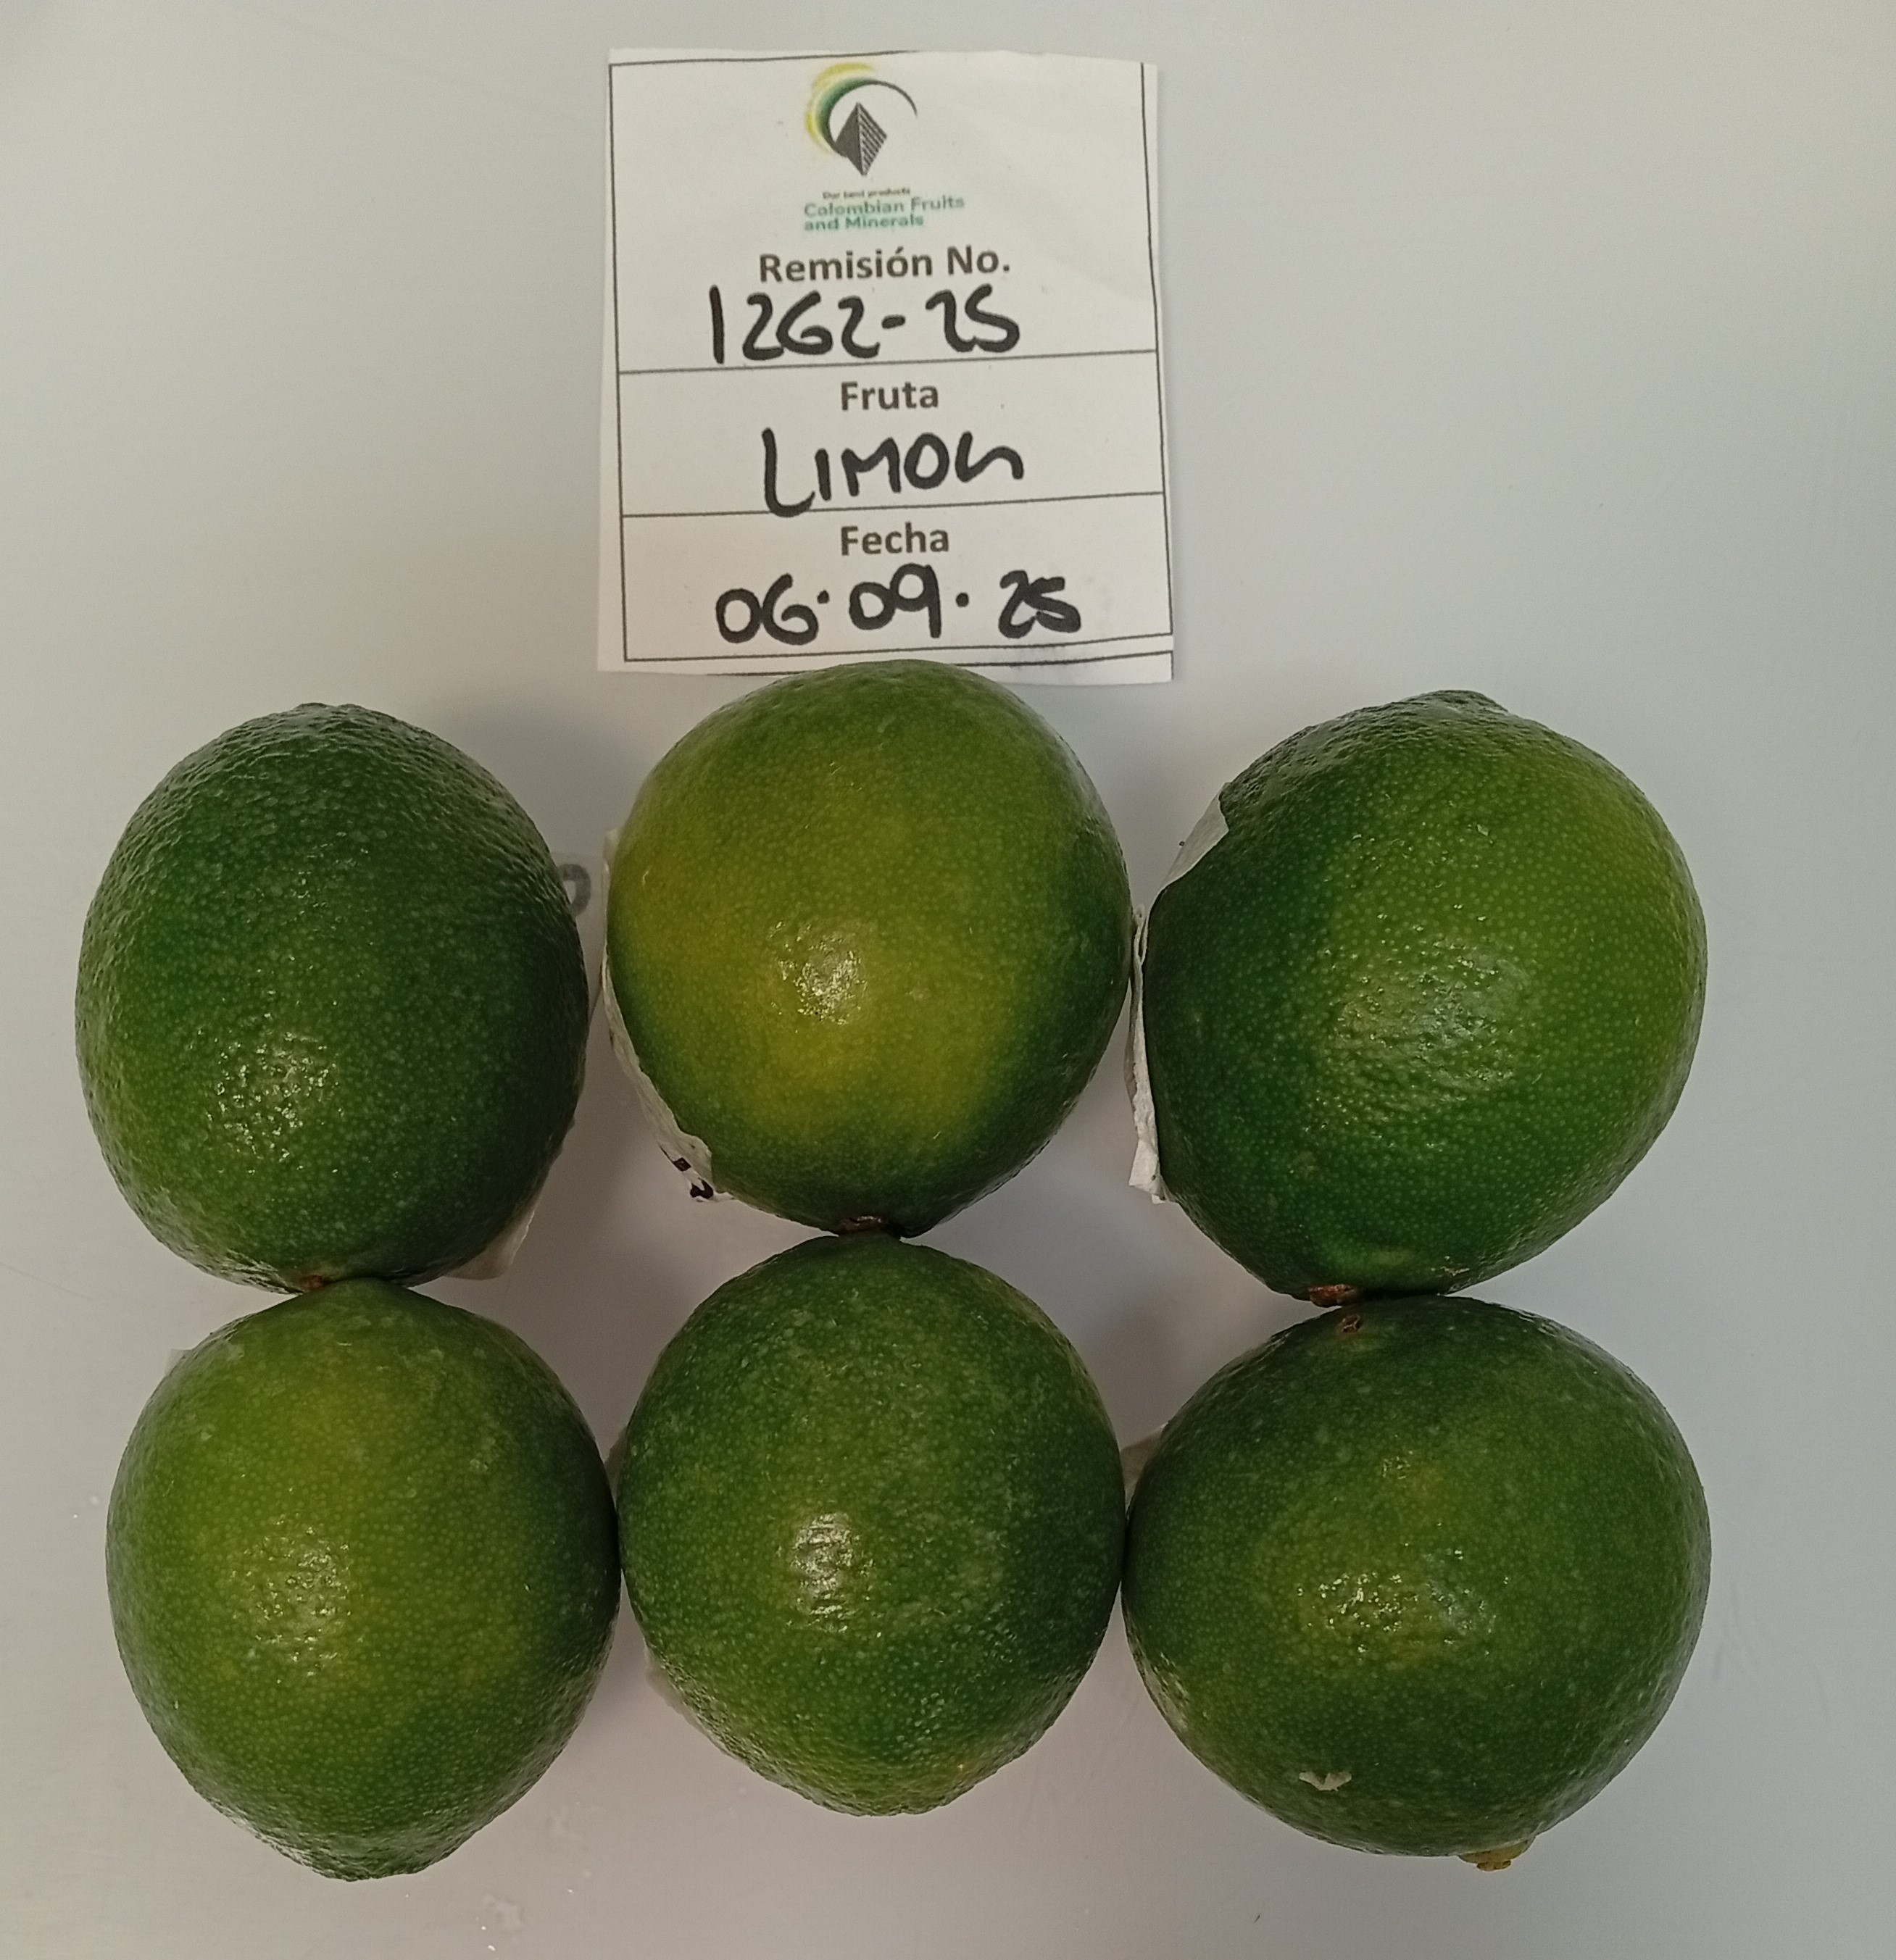 Our land products
Colombian Fruits
and Minerals
Remisión No.
1262-25
Fruta
LIMON
Fecha
06·09·25